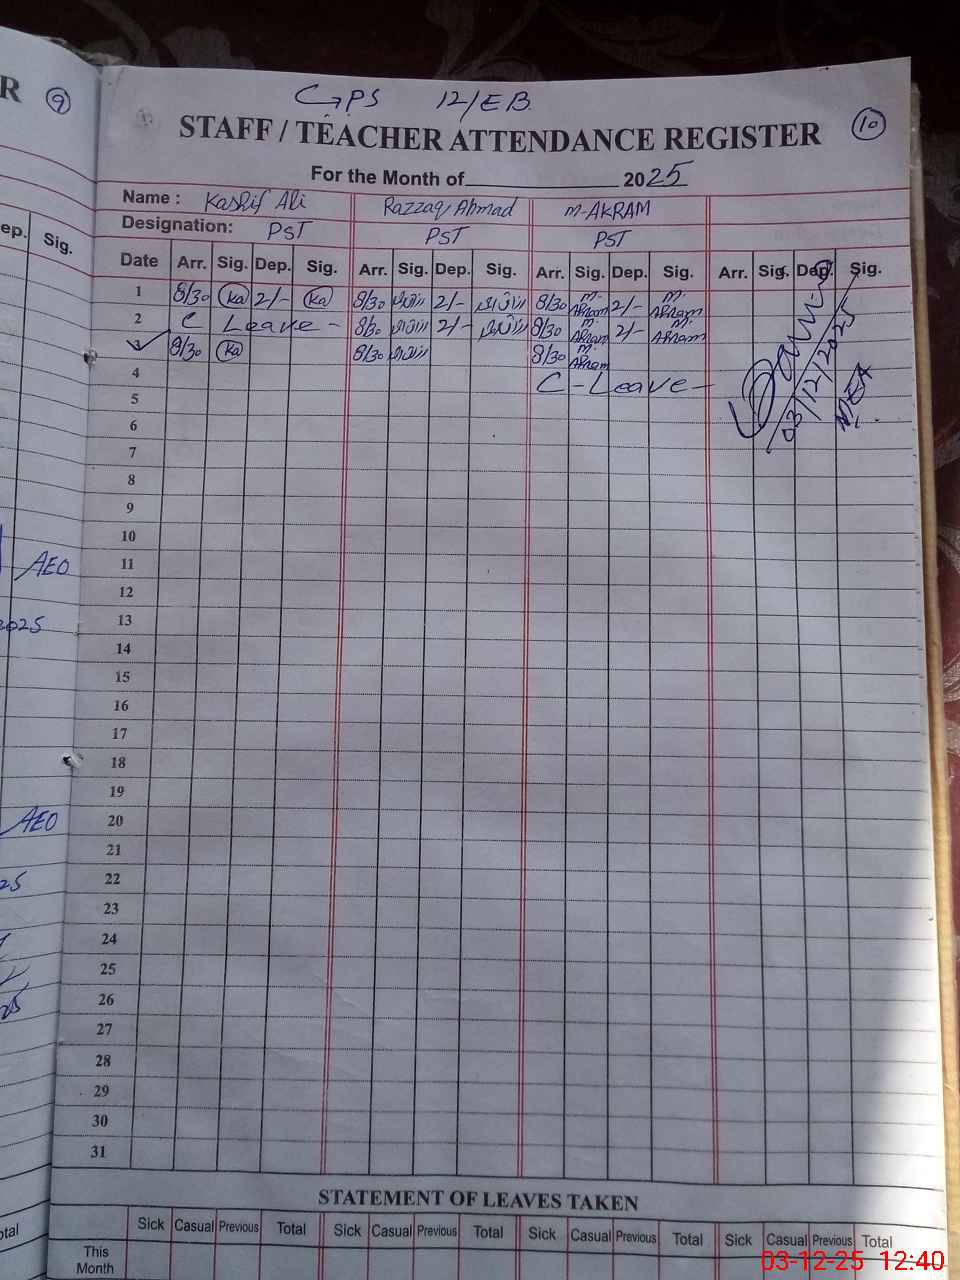 R 9
GPS 12/EB
10
STAFF / TEACHER ATTENDANCE REGISTER
For the Month of 2025
Name : Kashif Ali Razzaq Ahmad M-AKRAM
Designation: PST PST PST
ep. Sig.
Date Arr. Sig. Dep. Sig. Arr. Sig. Dep. Sig. Arr. Sig. Dep. Sig. Arr. Sig. Dep. Sig.
1 8/30 Ka 2/- Ka 8/30 رزاق 2/- رزاق 8/30 M. Akram 2/- M. Akram
2 C Leave - 8/30 رزاق 2/- رزاق 8/30 M. Akram 2/- M. Akram
3 8/30 Ka 8/30 رزاق 8/30 M. Akram
4 C - Leave -
03/12/2025
MEA
5
6
7
8
9
10
11
AEO
12
13
2025
14
15
16
17
18
19
20
AEO
21
22
25
23
24
25
26
27
28
29
30
31
STATEMENT OF LEAVES TAKEN
Sick Casual Previous Total Sick Casual Previous Total Sick Casual Previous Total Sick Casual Previous Total
otal
This Month
03-12-25 12:40